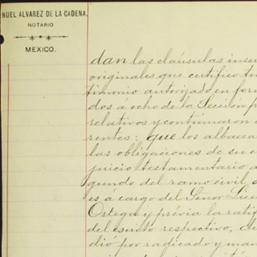 NUEL ALVAREZ DE LA CADENA,
NOTARIO
MEXICO.
dan las cláusulas inser
originales que certifico
timonio autorizado en for
dos a ocho de la Sección
relativos y continuaron
rentes: que los albacea
las obligaciones de su
juicio testamentario a
gundo del ramo civil,
es a cargo del Señor Lice
Ortega y prévia la rati
del escrito respectivo,
dió por radicado y man